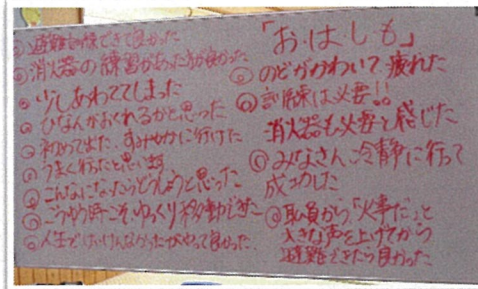 避難訓練できて良かった
消火器の練習があった方が良かった
少しあわててしまった
ひなんがおくれるかと思った
初めて出た、すみやかに行けた
うまく行ったと思います
こんなになったらどうしようと思った
こうゆう時こそゆっくり移動できた
人生でけいけんなかったがやって良かった
「お・は・し・も」
のどがかわいて、疲れた
訓練は必要!!
消火器も必要と感じた
みなさん、冷静に行って
成功した
職員から「火事だ」と
大きな声を上げてから
避難できたら良かった